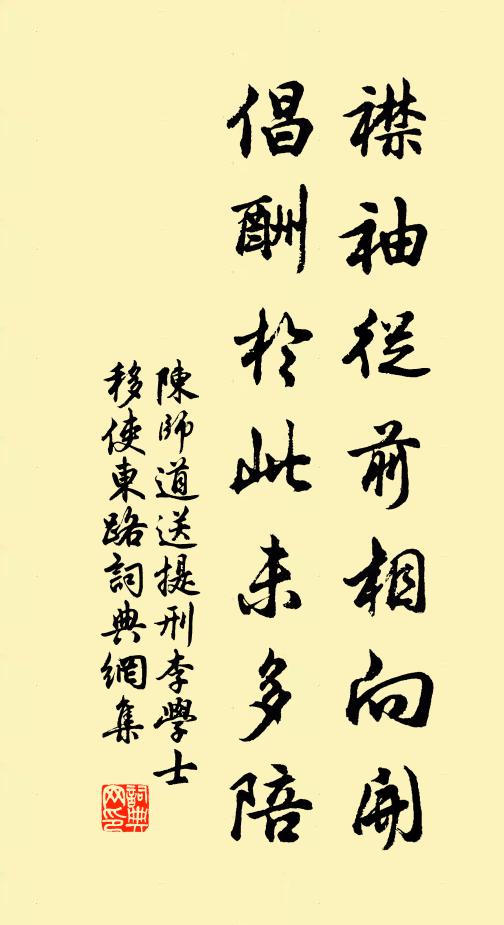 襟袖從前相向開
倡酬於此未多陪
陳師道送提刑李學士
移使東路詞典網集
詞典
网印